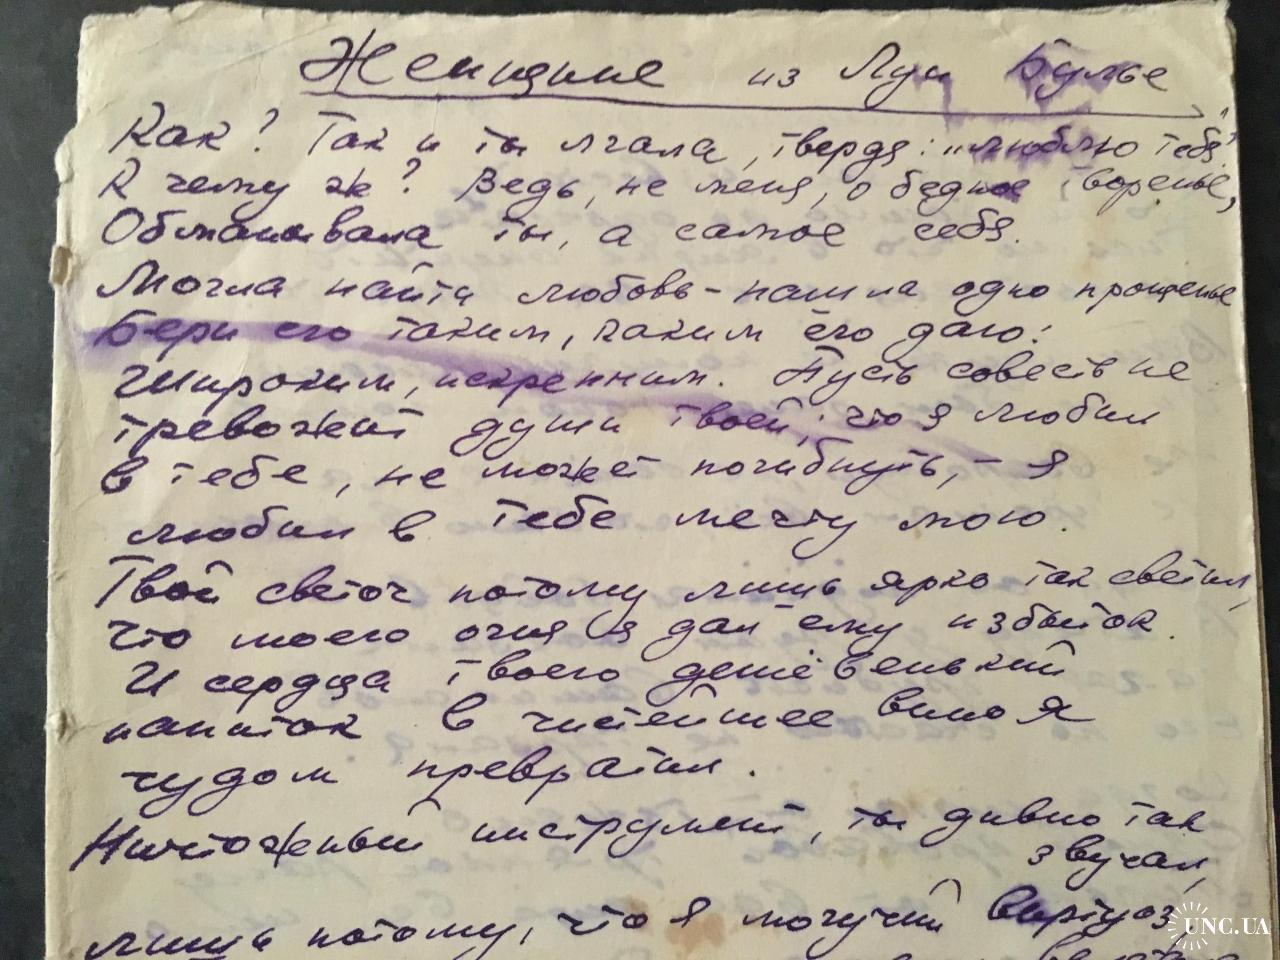 Женщине из Луи Булье
Как? Так и ты лгала, твердя: „люблю тебя".
К чему ж? Ведь, не меня, о бедное творенье,
Обманывала ты, а самое себя.
Могла найти любовь – нашла одно прощенье
Бери его таким, каким его даю:
Широким, искренним. Пусть совесть не
тревожит души твоей; что я любил
в тебе, не может погибнуть, – я
любил в тебе мечту мою.
Твой светоч потому лишь ярко так светил,
Что моего огня я дал ему избыток.
И сердца твоего дешёвенький
напиток в чистейшее вино я
чудом превратил.
Ничтожный инструмент, ты дивно так
звучал,
лишь потому, что я могучий виртуоз,
UNC.UA